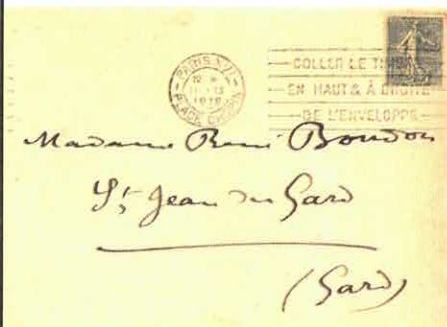 PARIS XVI
PLACE CHOPIN
COLLER LE TIMBRE
EN HAUT & À DROITE
DE L'ENVELOPPE
Madame René Boudon
St Jean du Gard
(Gard)